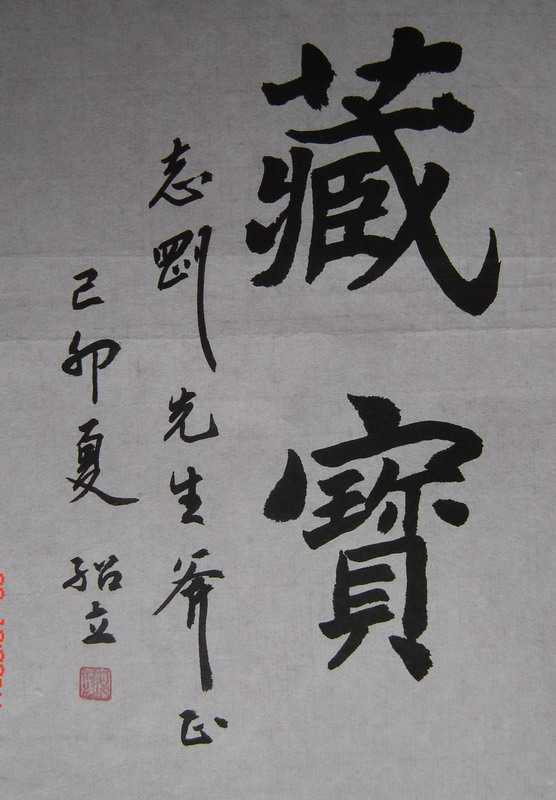 藏寶
志剛先生斧正
己卯夏 紹立